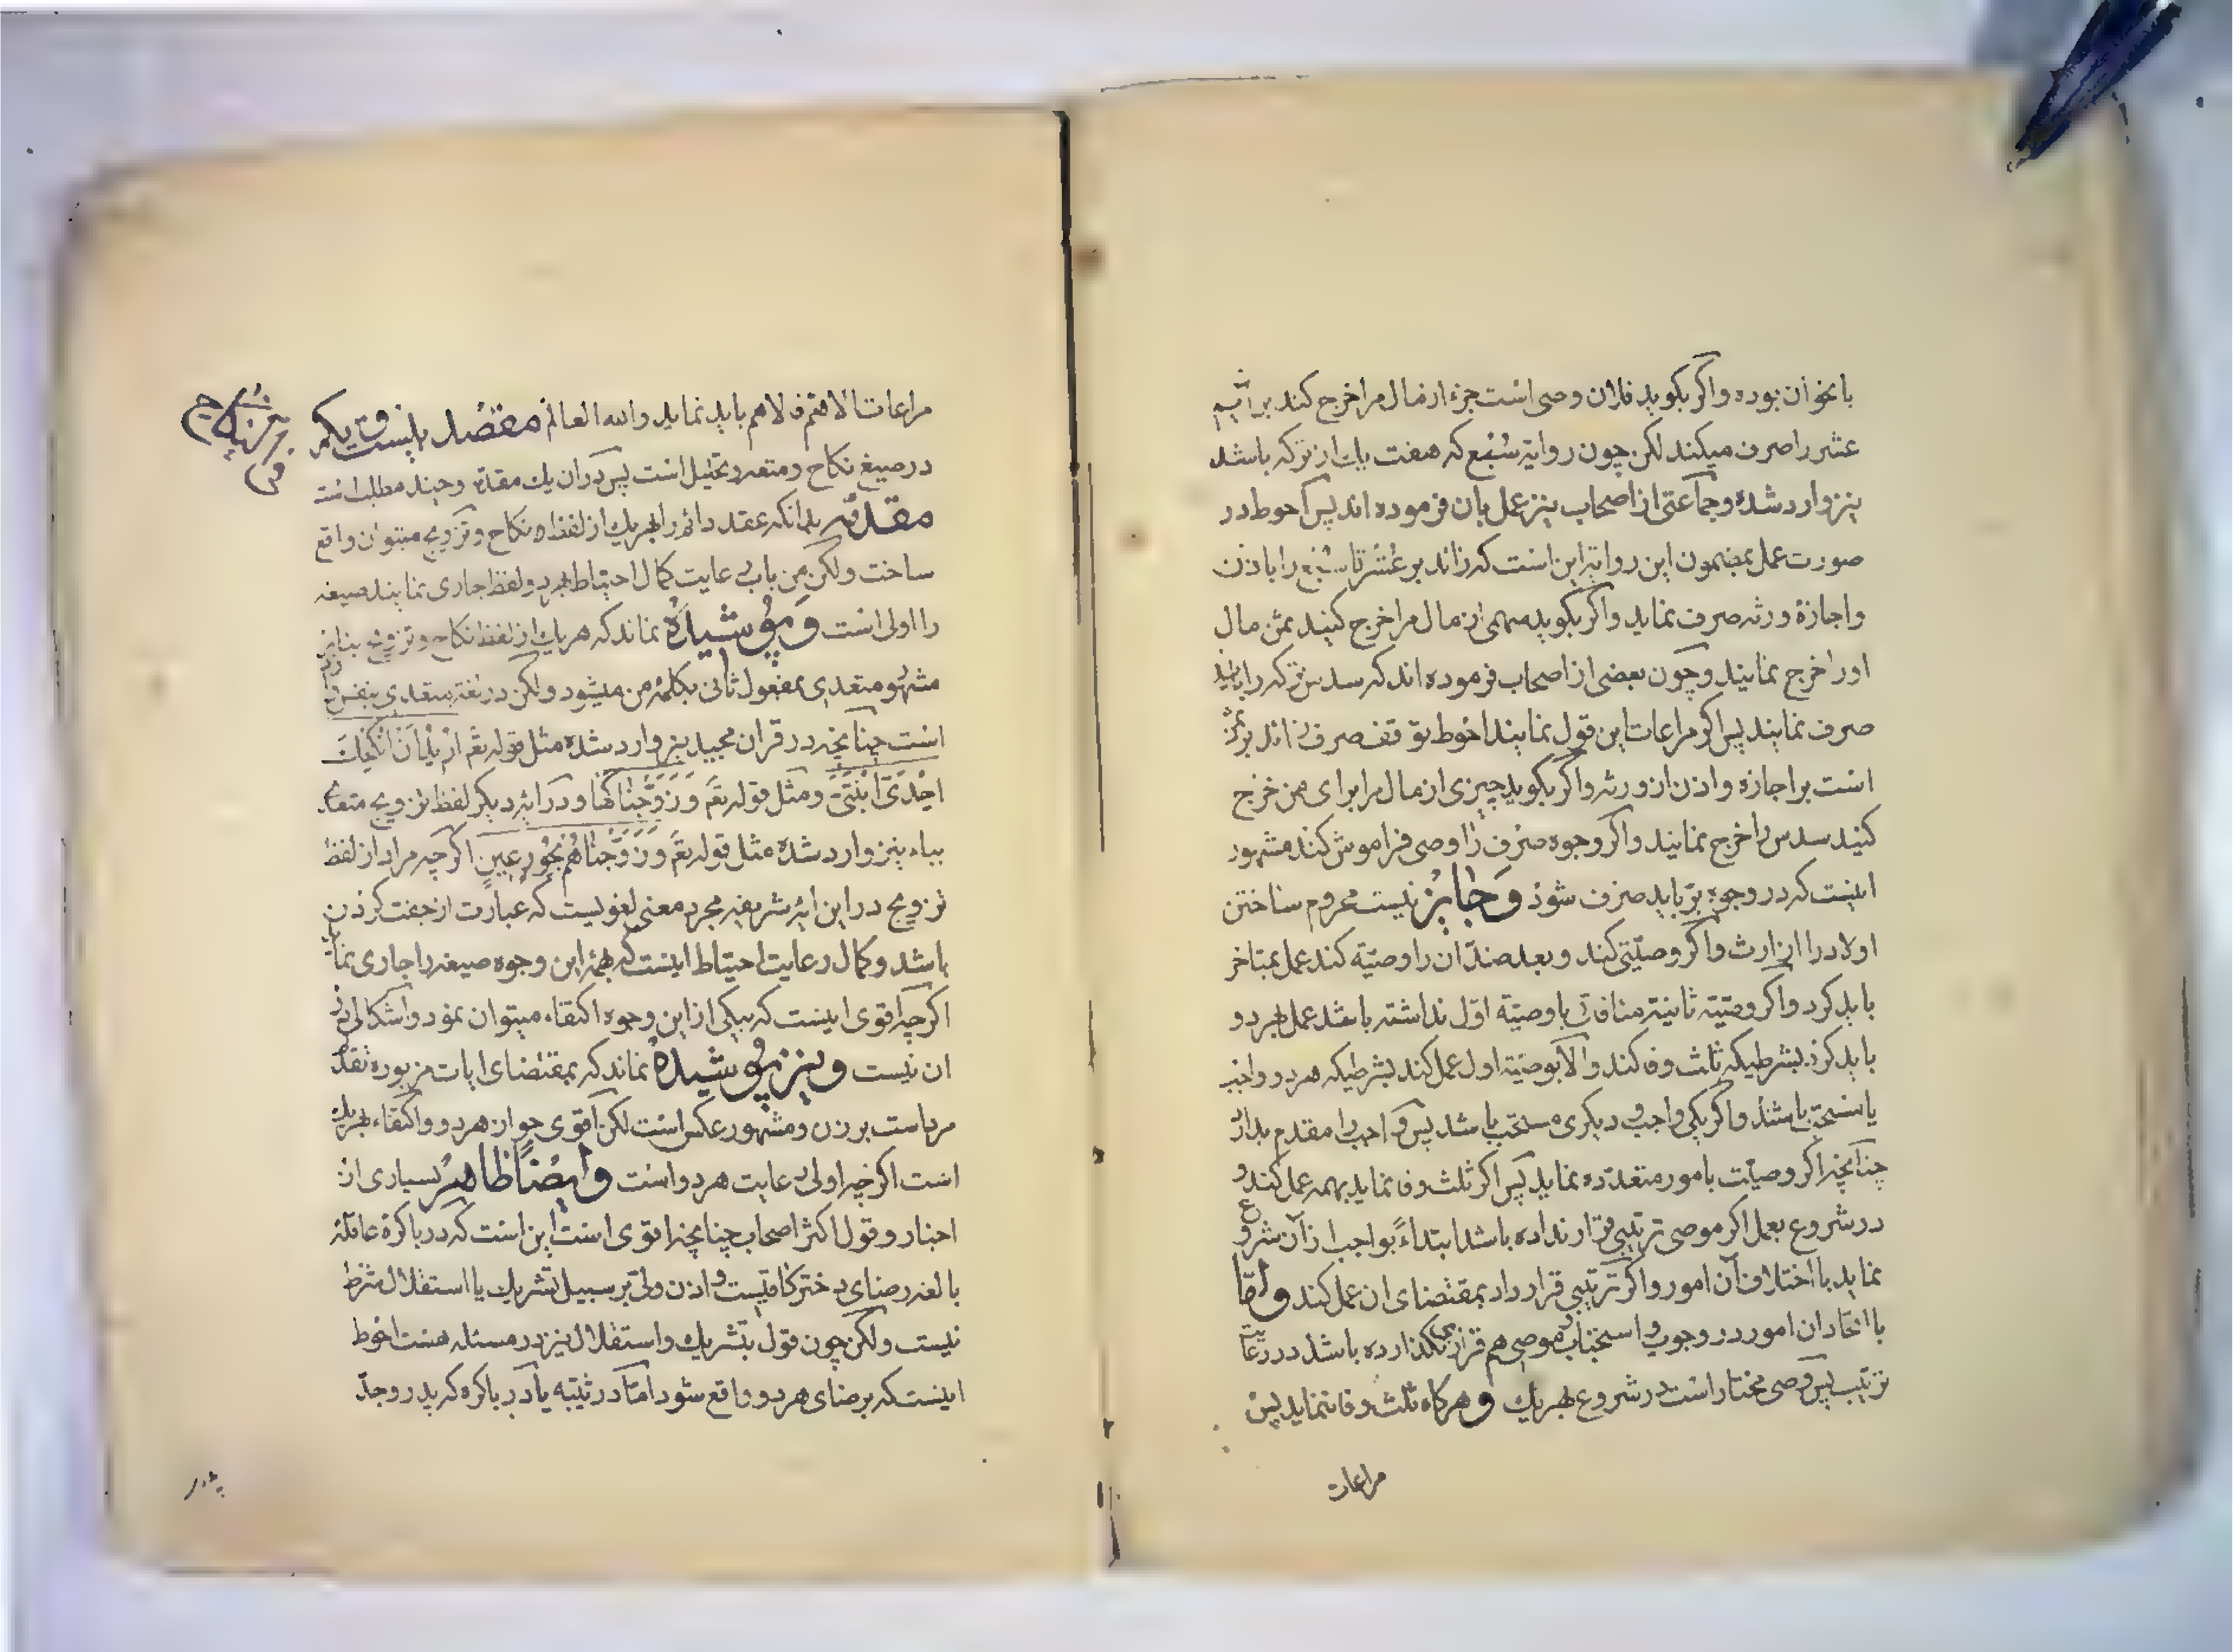 بانخوان بوده واکر بکوید فلان وصی است جزء از مال مرا خرج کند
عشر را صرف میکند لکن چون روایة سُبُع که هفت یك از ترکه باشد
نیز وارد شده وجماعتی از اصحاب نیز عمل بان فرموده اند پس احوط در
صورت عمل بمضمون این روایة این است که زائد بر عُشر تا سُبُع را باذن
واجازة ورثه صرف نماید واکر بکوید سهمی از مال مرا خرج کنید ثمن مال
اورا خرج نمایند وچون بعضی از اصحاب فرموده اند که سدس ترکه را باید
صرف نمایند پس اکر مراعات این قول نمایند احوط توقف صرف زائد بر ثمن
است بر اجازه واذن از ورثه واکر بکوید چیزی از مال مرا برای من خرج
کنید سدس را خرج نمایند واکر وجوه صرف را وصی فراموش کند مشهور
اینست که در وجوه برّ باید صرف شود وَجایز نیست محروم ساختن
اولاد را از ارث واکر وصیّتی کند وبعد ضدّ ان را وصیّة کند عمل بمتاخر
باید کرد واکر وصیّة ثانیة منافاتی با وصیّة اوّل نداشته باشد عمل بهر دو
باید کرد بشرطیکه ثلث وفا کند والّا بوصیّة اول عمل کند بشرطیکه هر دو واجب
یا مستحبّ باشند واکر یکی واجب ودیکری مستحب باشد پس واجب را مقدم بدارد
چنانچه اکر وصیّت بامور متعدّده نماید پس اکر ثلث وفا نماید بهمه عمل کند و
در شروع بعمل اکر موصی ترتیبی قرار نداده باشد ابتداءً بواجب از آن شروع
نماید با اختلاف آن امور واکر ترتیبی قرار داد بمقتضای ان عمل کند وامّا
با اتحاد ان امور در وجوب واستحباب وموصی هم قراری نکذارده باشد در رعایت
ترتیب پس وصی مختار است در شروع بهر یك وهرکاه ثلث وفا ننماید پس
مراعات
مراعات الاهمّ فالاهم باید نماید والله العالم مقصد بیست ویکم
در صیغ نکاح ومتعه وتحلیل است پس در ان یك مقدّمه وچند مطلب است
مقدّمه بدانکه عقد دائم را بهر یك از لفظ نکاح وتزویج میتوان واقع
ساخت ولکن من باب رعایت کمال احتیاط بهر دو لفظ جاری نمایند صیغه
را اولی است وَپوشیده نماند که هر یك از لفظ نکاح وتزویج بنابر
مشهور متعدی بمفعول ثانی بکلمهٔ من میشود ولکن در لغة متعدی بنفس
است چنانچه در قران مجید نیز وارد شده مثل قوله تعم ارید ان انکحك
اِحْدَی ابْنَتَیَّ ومثل قوله تعم وَزَوَّجْناکَها ودر ایهٔ دیکر لفظ تزویج متعدّی
بباء نیز وارد شده مثل قوله تعم وَزَوَّجْناهُم بِحُورٍ عِینٍ اکرچه مراد از لفظ
تزویج در این ایهٔ شریفه مجرّد معنی لغویست که عبارت از جفت کردن
باشد وکمال رعایت احتیاط اینست که بهمهٔ این وجوه صیغه را جاری نماید
اکرچه اقوی اینست که بیکی از این وجوه اکتفاء میتوان نمود واشکالی در
ان نیست ونیز پوشیده نماند که بمقتضای ایات مزبوره تقدّم
مرد است بر زن ومشهور عکس است لکن اقوی جواز هر دو واکتفاء بهر یك
است اکرچه اولی رعایت هر دو است وایضًا ظاهر بسیاری از
اخبار وقول اکثر اصحاب چنانچه اقوی است این است که در باکرهٔ عاقلهٔ
بالغه رضای دختر کافیست واذن ولی بر سبیل تشریك یا استقلال شرط
نیست ولکن چون قول بتشریك واستقلال نیز در مسئله هست احوط
اینست که برضای هر دو واقع شود امّا در ثیّبه یا در باکره که پدر وجدّ